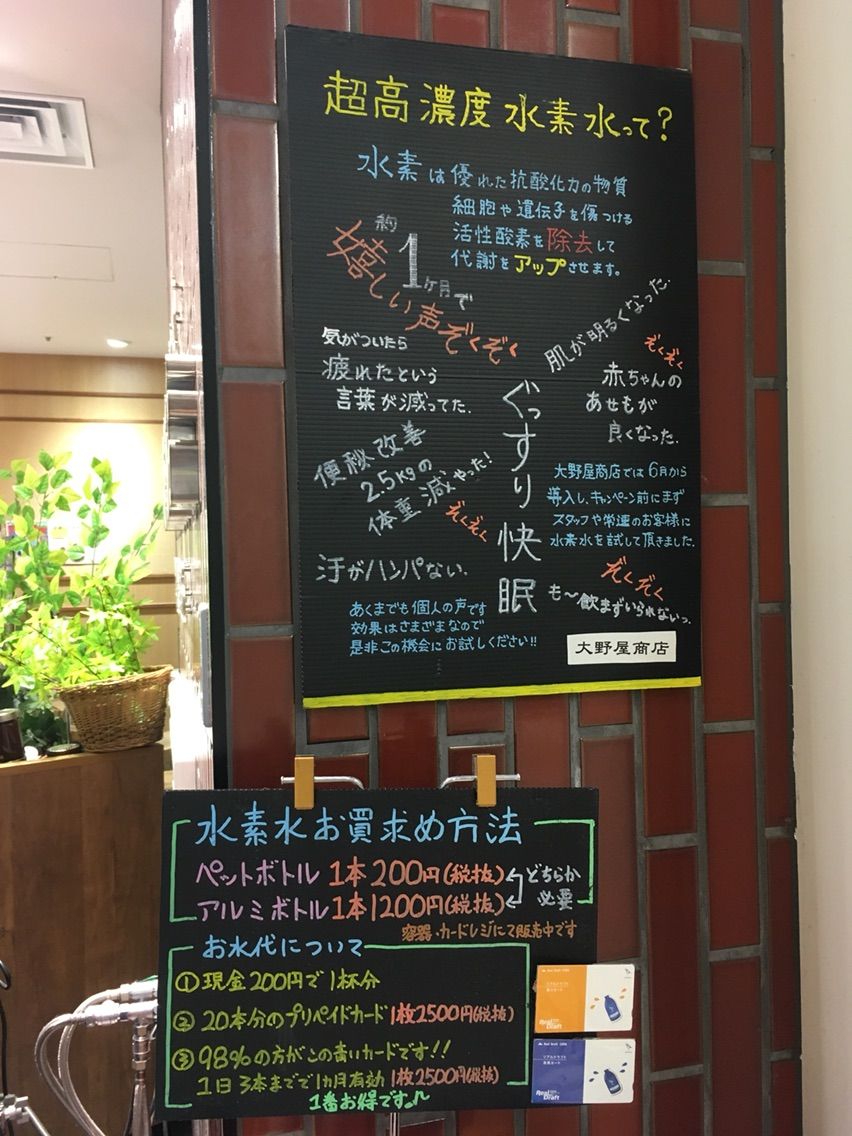 超高濃度水素水って?
水素は優れた抗酸化力の物質
細胞や遺伝子を傷つける
活性酸素を除去して
代謝をアップさせます。
約1ヶ月で
嬉しい声ぞくぞく
気がついたら
疲れたという
言葉が減ってた.
肌が明るくなった.
ぞくぞく
赤ちゃんの
あせもが
良くなった.
ぐっすり快眠
便秘改善
2.5kgの
体重減やった!
ぞくぞく
汗がハンパない.
大野屋商店では6月から
導入し、キャンペーン前にまず
スタッフや常連のお客様に
水素水を試して頂きました.
ぞくぞく
も〜飲まずいられないっ.
あくまでも個人の声です
効果はさまざまなので
是非この機会にお試しください!!
大野屋商店
水素水お買求め方法
ペットボトル 1本200円(税抜)
アルミボトル 1本1200円(税抜)
どちらか
必要
容器・カードレジにて販売中です
お水代について
①現金200円で1杯分
②20本分のプリペイドカード 1枚2500円(税抜)
③98%の方がこの青いカードです!!
1日3本までで1カ月有効 1枚2500円(税抜)
1番お得です
Real
Draft
Real
Draft